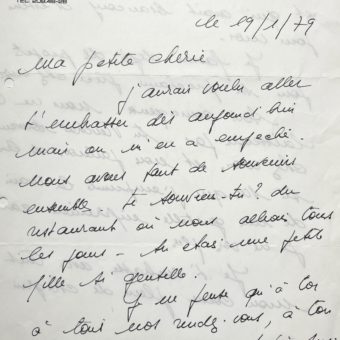 le 19/1/79
Ma petite chérie
j'aurais voulu aller
t'embrasser dès aujourd'hui
mais on m'en a empêché.
Nous avons tant de souvenirs
ensembles. te souviens-tu? du
restaurant où nous allions tous
les jours - tu étais une petite
fille si gentille.
Je ne pense qu'à toi
à tous nos rendez-vous, à ton